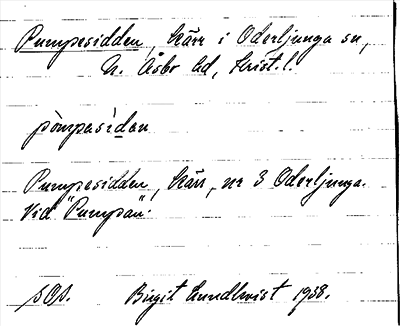 Pumpesidden, kärr i Oderljunga sn,
N. Åsbo hd, Krist. l.
pòmpasìdan
Pumpesidden, kärr, nr 3 Oderljunga.
Vid "Pumpan".
SOS. Birgit Lundkvist 1938.